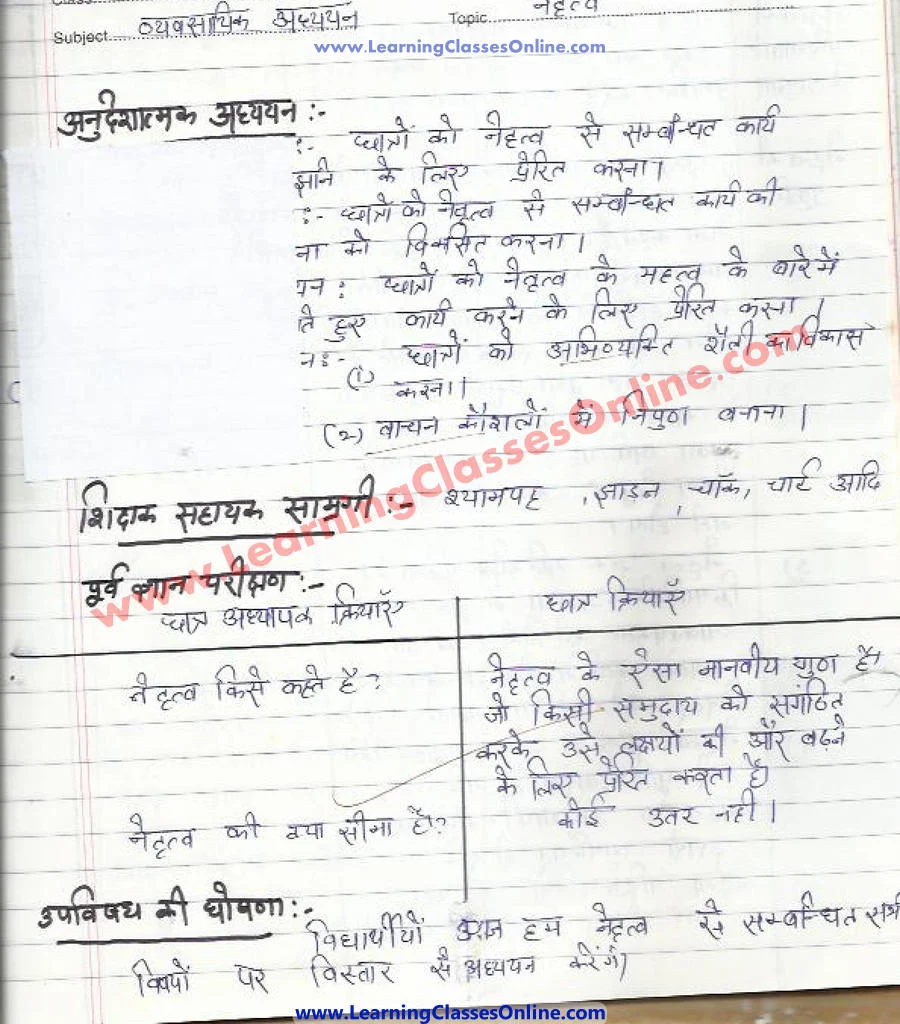 Subject..... व्यवसायिक अध्ययन Topic..... नेहृत्व
www.LearningClassesOnline.com
अनुदेशात्मक अध्ययन :-
:- छात्रों को नेहृत्व से सम्बन्धित कार्य
झाने के लिए प्रेरित करना।
:- छात्रों को नेवृत्व से सम्बन्धित कार्य की
ना को विकसित करना।
पन : छात्रों को नेतृत्व के महत्व के बारे में
ते हुए कार्य करने के लिए प्रेरित करना।
न :- (i) छात्रों को अभिव्यक्ति शैली का विकास
करना।
(2) वाचन कौशलों में निपुण बनाना।
www.LearningClassesOnline.com
शिक्षक सहायक सामग्री :- श्यामपट्ट, झाडन, चॉक, चार्ट आदि
पूर्व ज्ञान परीक्षण :-
छात्र अध्यापक क्रियाएँ छात्र क्रियाएँ
नेतृत्व किसे कहते है? नेहृत्व के ऐसा मानवीय गुण है।
जो किसी समुदाय को सगंठित
करके उसे लक्षयों की और बढ़ने
के लिए प्रेरित करता है।
नेतृत्व की क्या सीमा है? कोई उतर नही।
उपविषय की घोषणा :-
विद्यार्थीयों आज हम नेहृत्व से सम्बन्धित सभी
विषयों पर विस्तार से अध्ययन करेंगे।
www.LearningClassesOnline.com